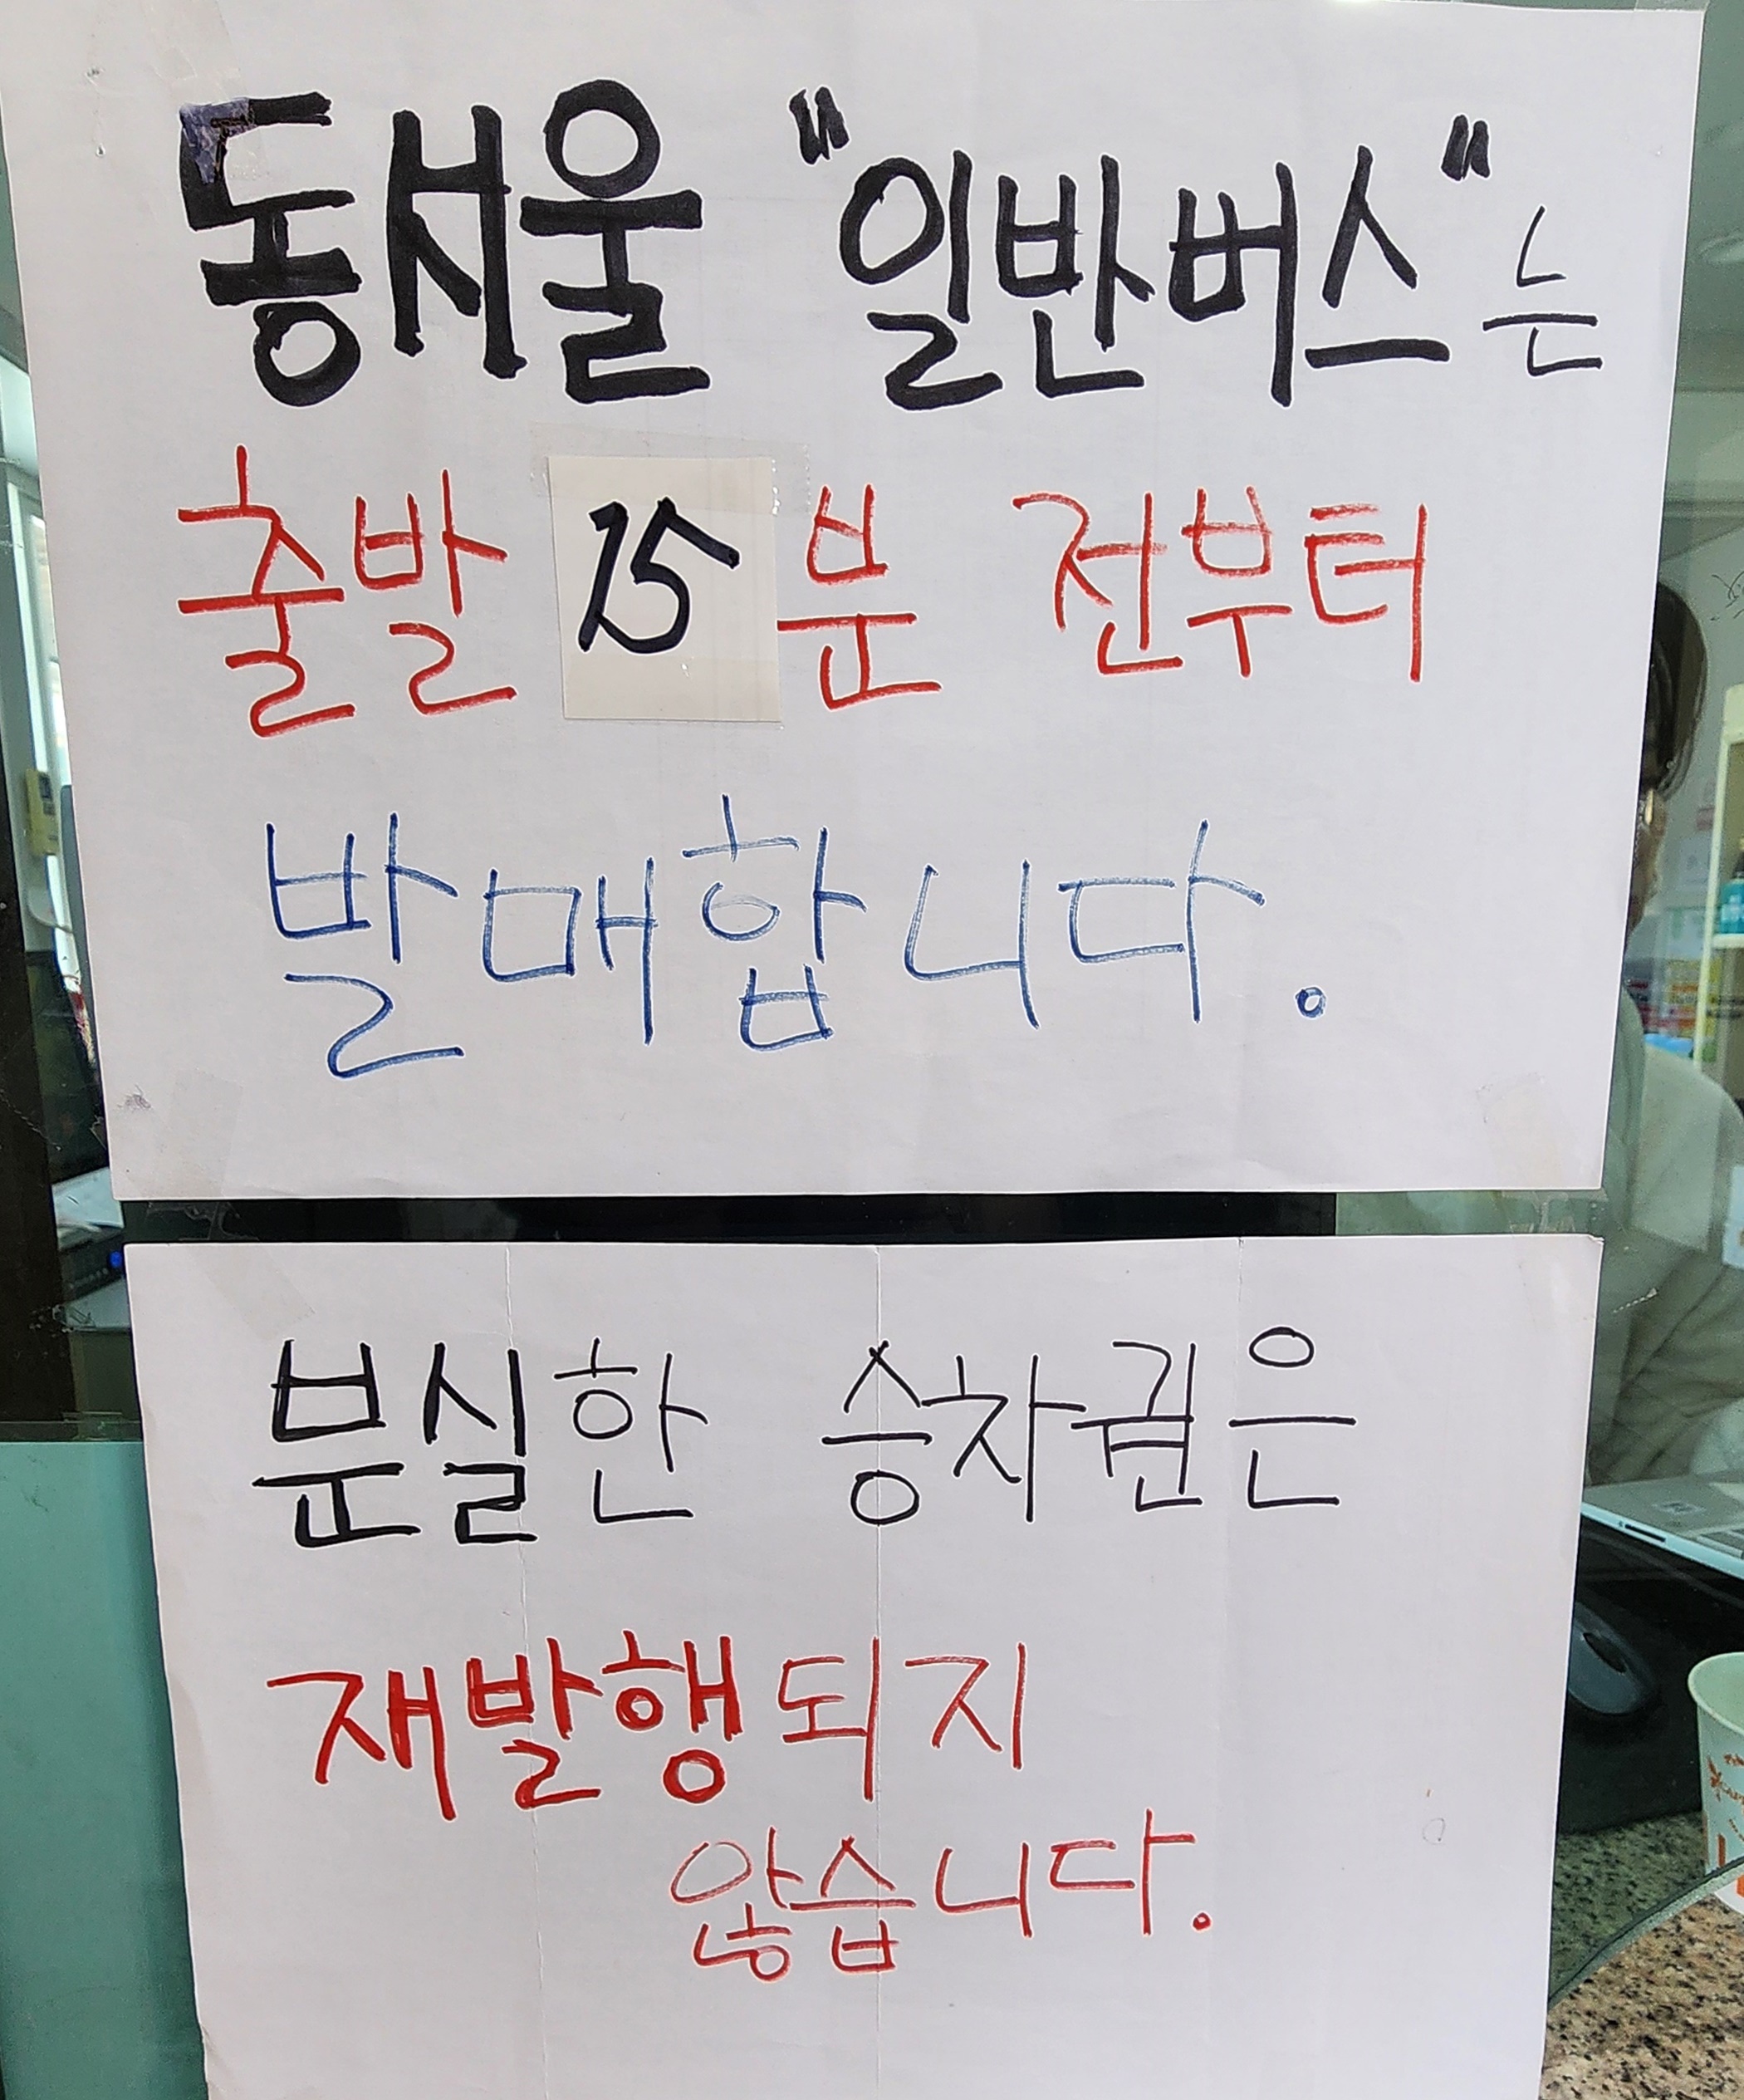 동서울 "일반버스"는
출발 15분 전부터
발매합니다.
분실한 승차권은
재발행되지
않습니다.